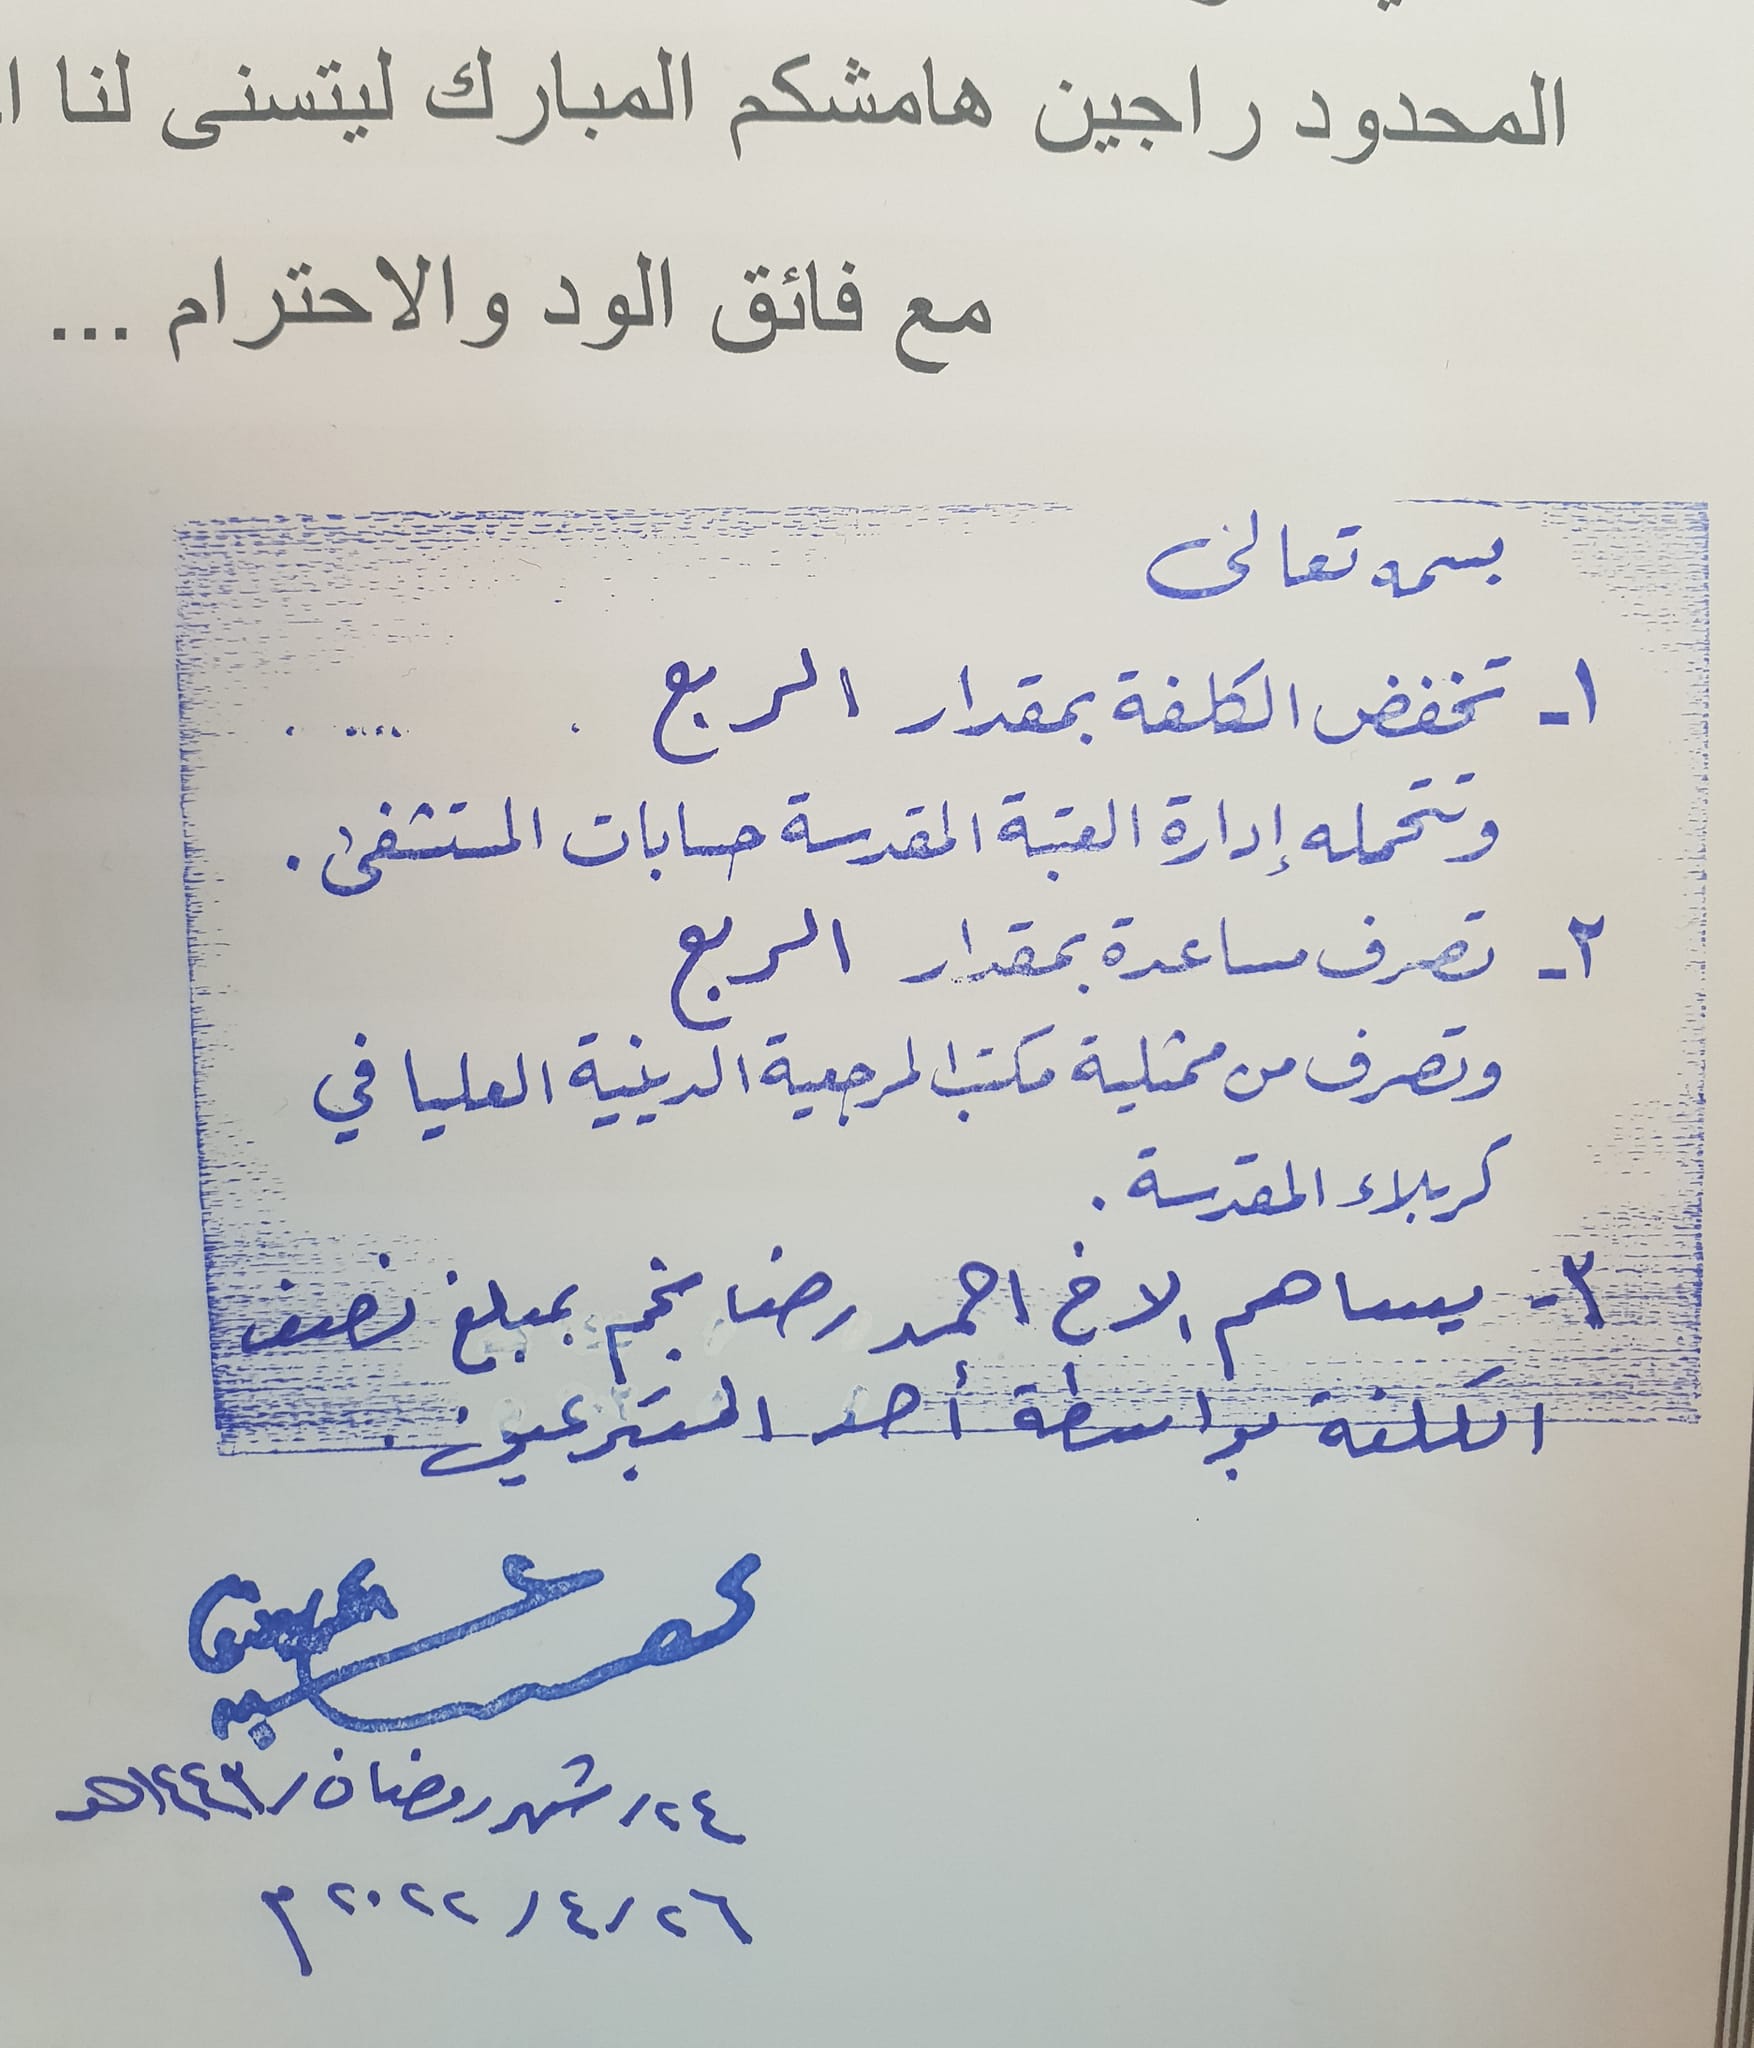 المحدود راجين هامشكم المبارك ليتسنى لنا
مع فائق الود والاحترام ...
بسمه تعالى
١- تخفض الكلفة بمقدار الربع
وتتحمله إدارة العتبة المقدسة حسابات المستشفى .
٢- تصرف مساعدة بمقدار الربع
وتصرف من ممثلية مكتب المرجعية الدينية العليا في
كربلاء المقدسة .
٣- يساهم الاخ احمد رضا نجم بمبلغ نصف
الكلفة بواسطة أحد المتبرعين .
٢٤/ شهر رمضان /١٤٤٣هـ
٢٦/ ٤/ ٢٠٢٢ م